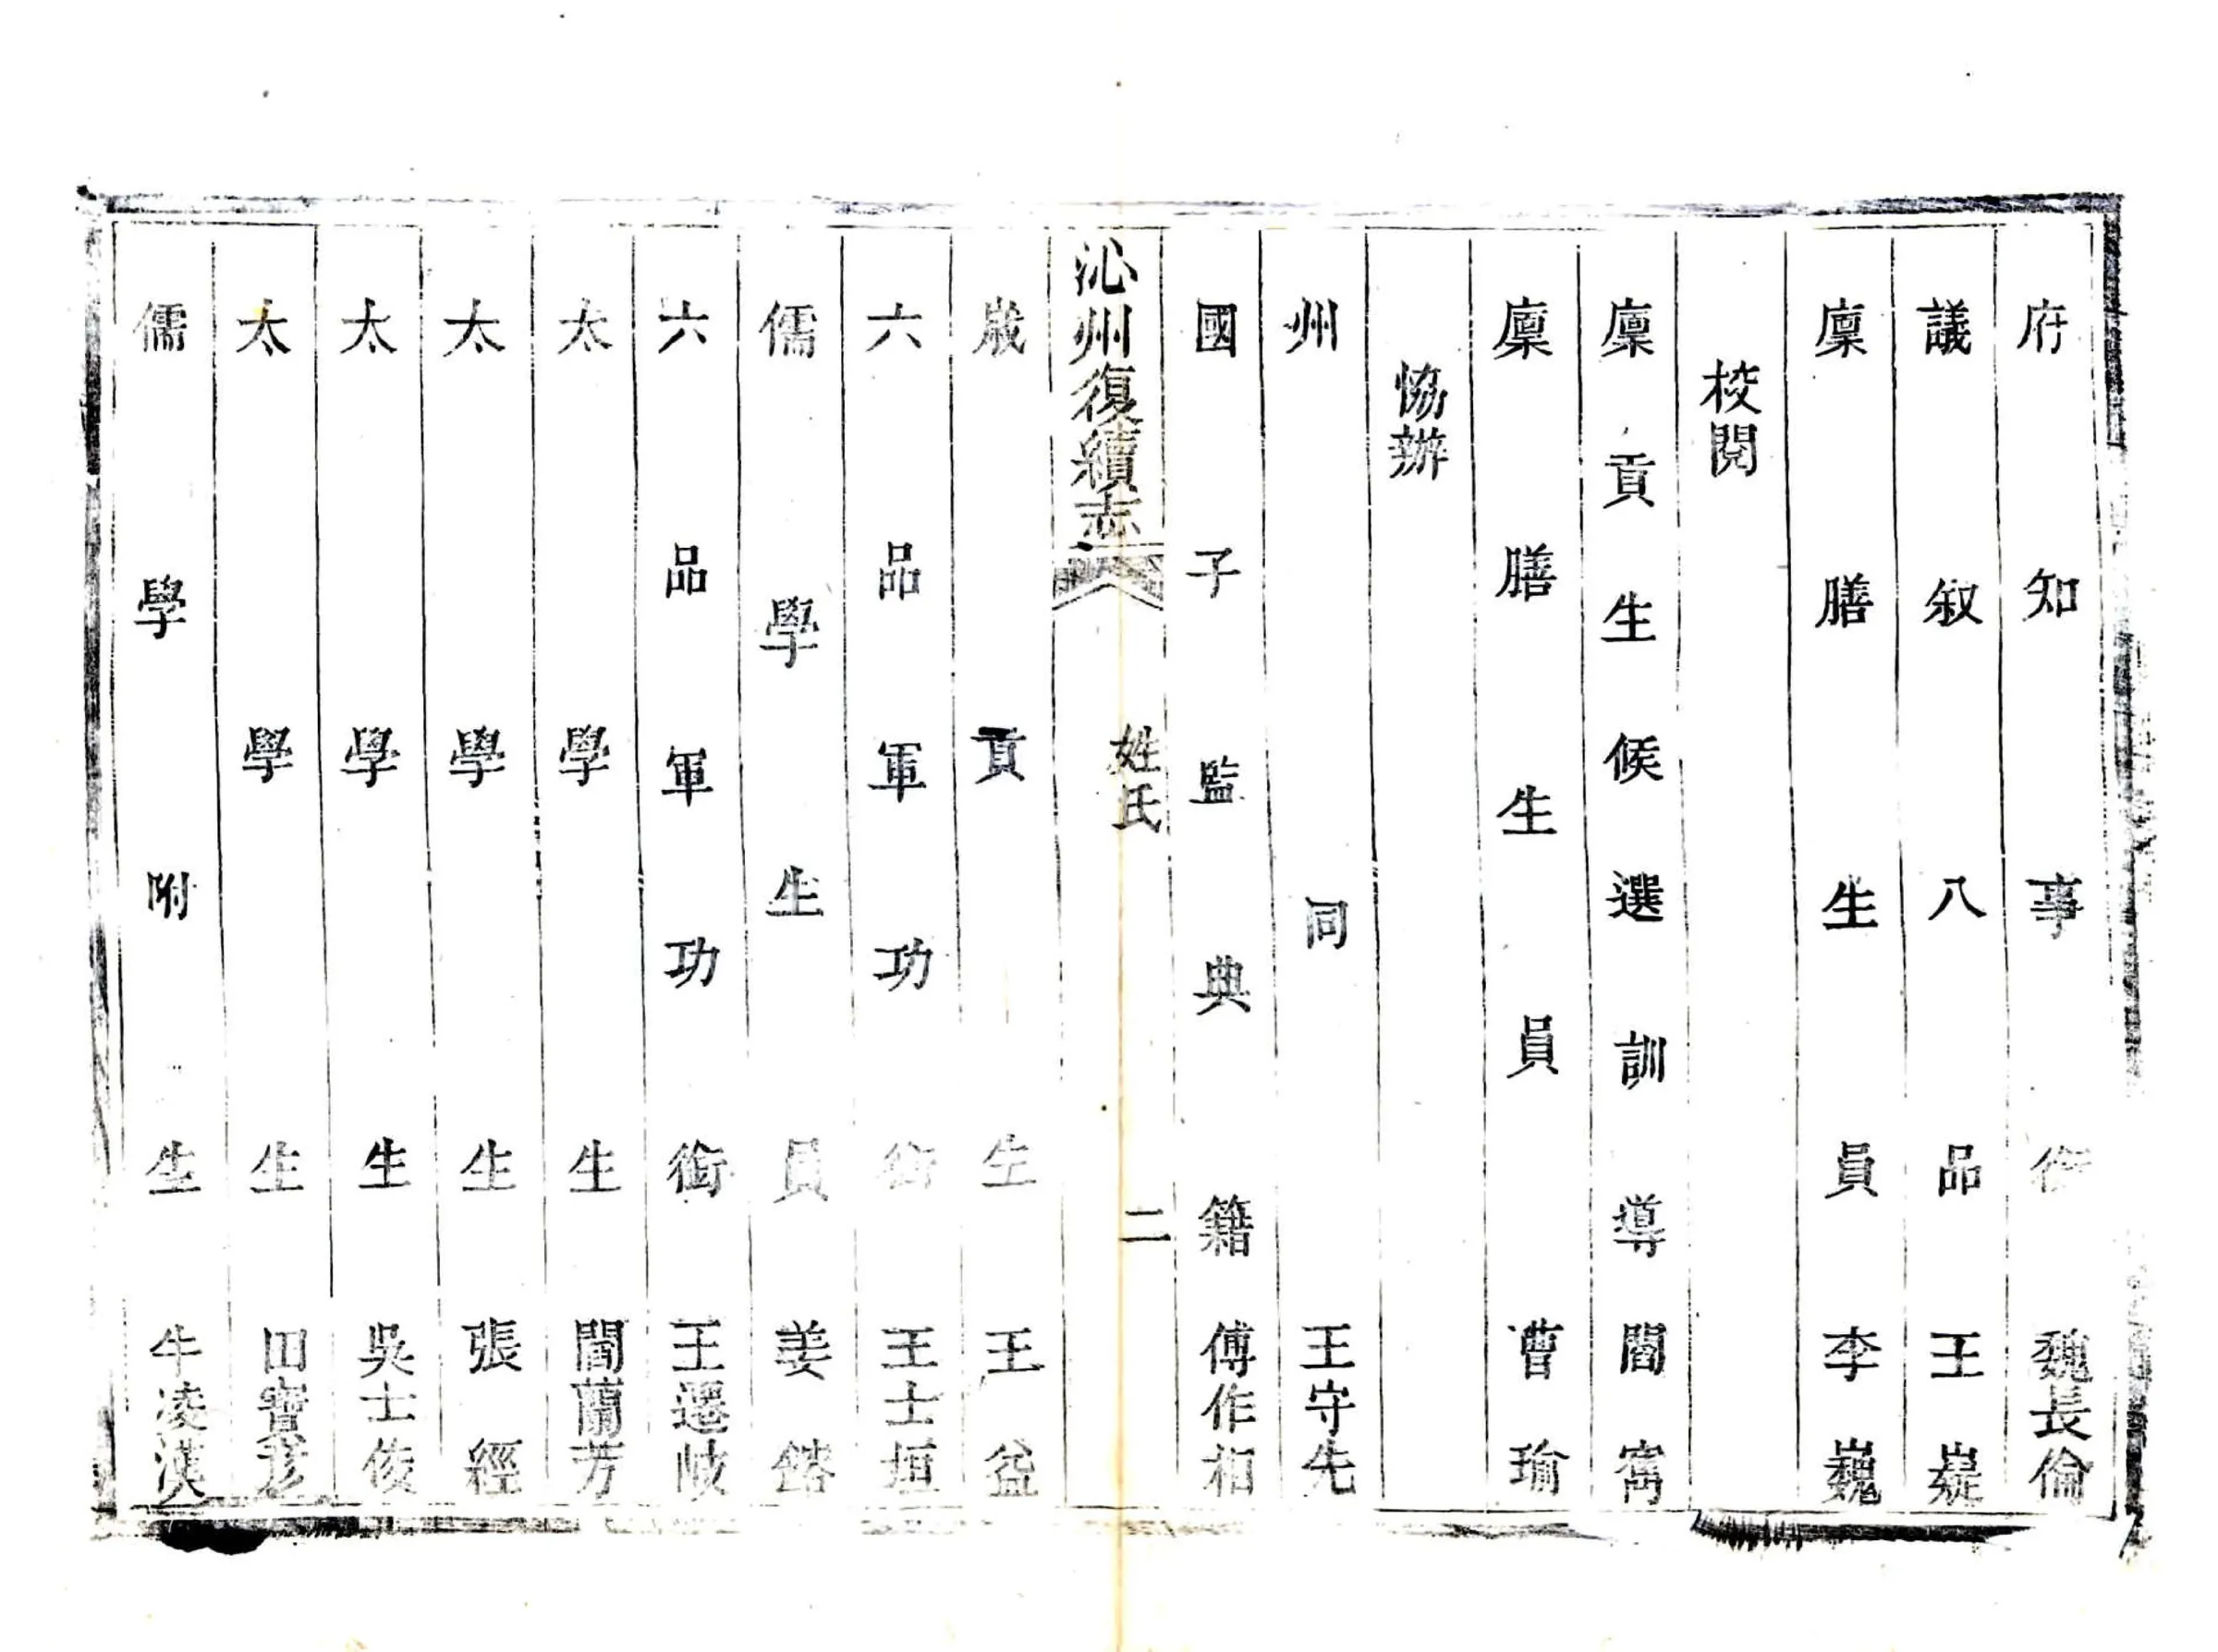 府知事銜魏長倫
議叙八品王嶷
廩膳生員李巍
校閱
廩貢生候選訓導閻寗
廩膳生員曹瑜
恊辦
州同王守先
國子監典籍傅作和
沁州復續志 姓氏 二
歲貢生王益
六品軍功銜王士垣
儒學生員姜
六品軍功銜王遷岐
太學生閻蘭芳
太學生張經
太學生吳士俊
太學生田寶彦
儒學附生牛凌漢